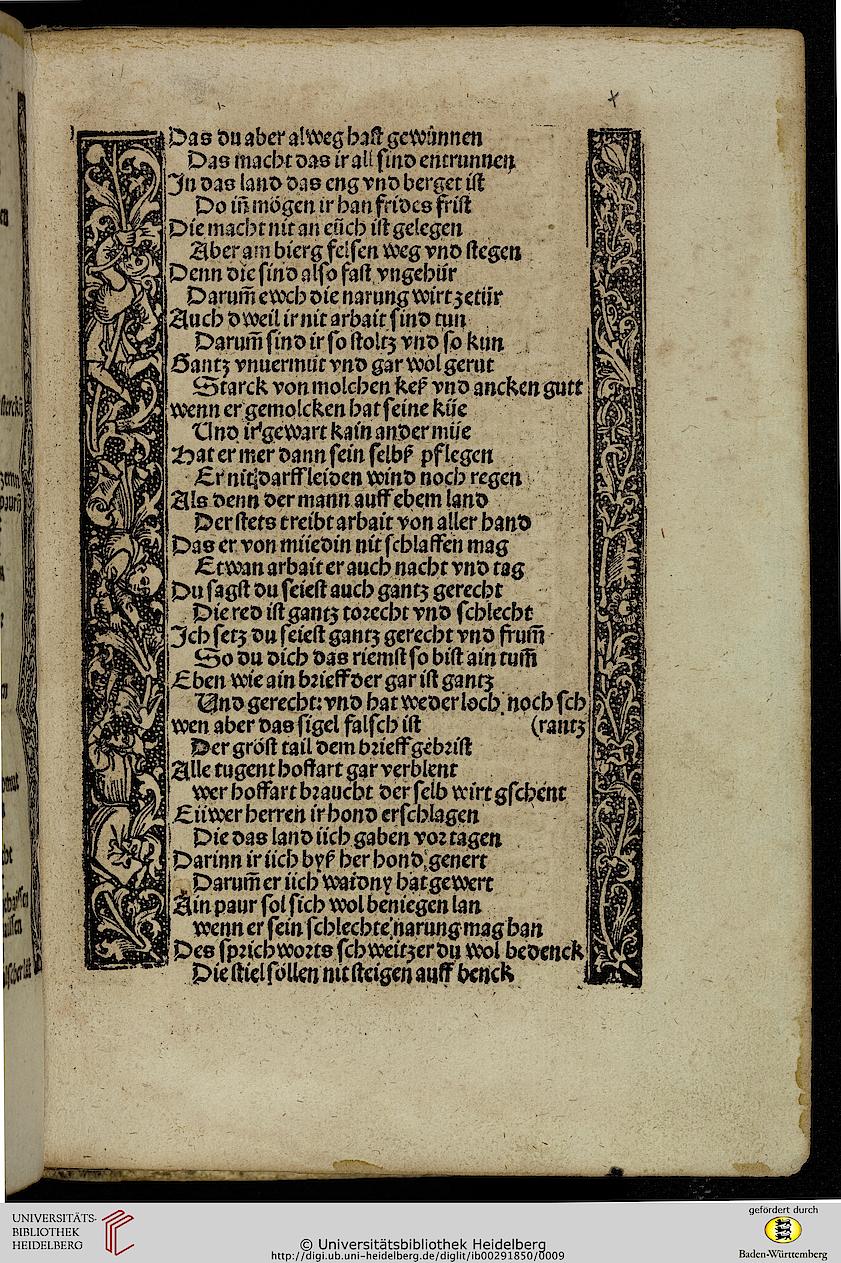 Das du aber alweg hast gewünnen
Das macht das ir all sind entrunnen
In das land das eng vnd berget ist
Do iñ mögen ir han frides frist
Die macht nit an eüch ist gelegen
Aber am bierg felsen weg vnd stegen
Denn die sind also fast vngehür
Darum̃ ewch die narung wirt zetür
Auch dweil ir nit arbait sind tun
Darum̃ sind ir so stoltz vnd so kun
Gantz vnuermüt vnd gar wol gerut
Starck von molchen keß vnd ancken gutt
wenn er gemolcken hat seine küe
Und ir gewart kain ander müe
Hat er mer dann sein selbß pflegen
Er nit darff leiden wind noch regen
Als denn der mann auff ebem land
Der stets treibt arbait von aller hand
Das er von müedin nit schlaffen mag
Etwan arbait er auch nacht vnd tag
Du sagst du seiest auch gantz gerecht
Die red ist gantz torecht vnd schlecht
Ich setz du seiest gantz gerecht vnd frum̃
So du dich das riemst so bist ain tum̃
Eben wie ain brieff der gar ist gantz
Und gerecht: vnd hat weder loch noch sch
wen aber das sigel falsch ist (rantz
Der gröst tail dem brieff gebrist
Alle tugent hoffart gar verblent
wer hoffart braucht der selb wirt gschent
Eüwer herren ir hond erschlagen
Die das land üch gaben vor tagen
Darinn ir üch byß her hond genert
Darum̃ er üch waidny hat gewert
Ain paur sol sich wol beniegen lan
wenn er sein schlechte narung mag han
Des sprichworts schweitzer du wol bedenck
Die stiel söllen nit steigen auff benck
UNIVERSITÄTS-
BIBLIOTHEK
HEIDELBERG
© Universitätsbibliothek Heidelberg
http://digi.ub.uni-heidelberg.de/diglit/ib00291850/0009
gefördert durch
Baden-Württemberg